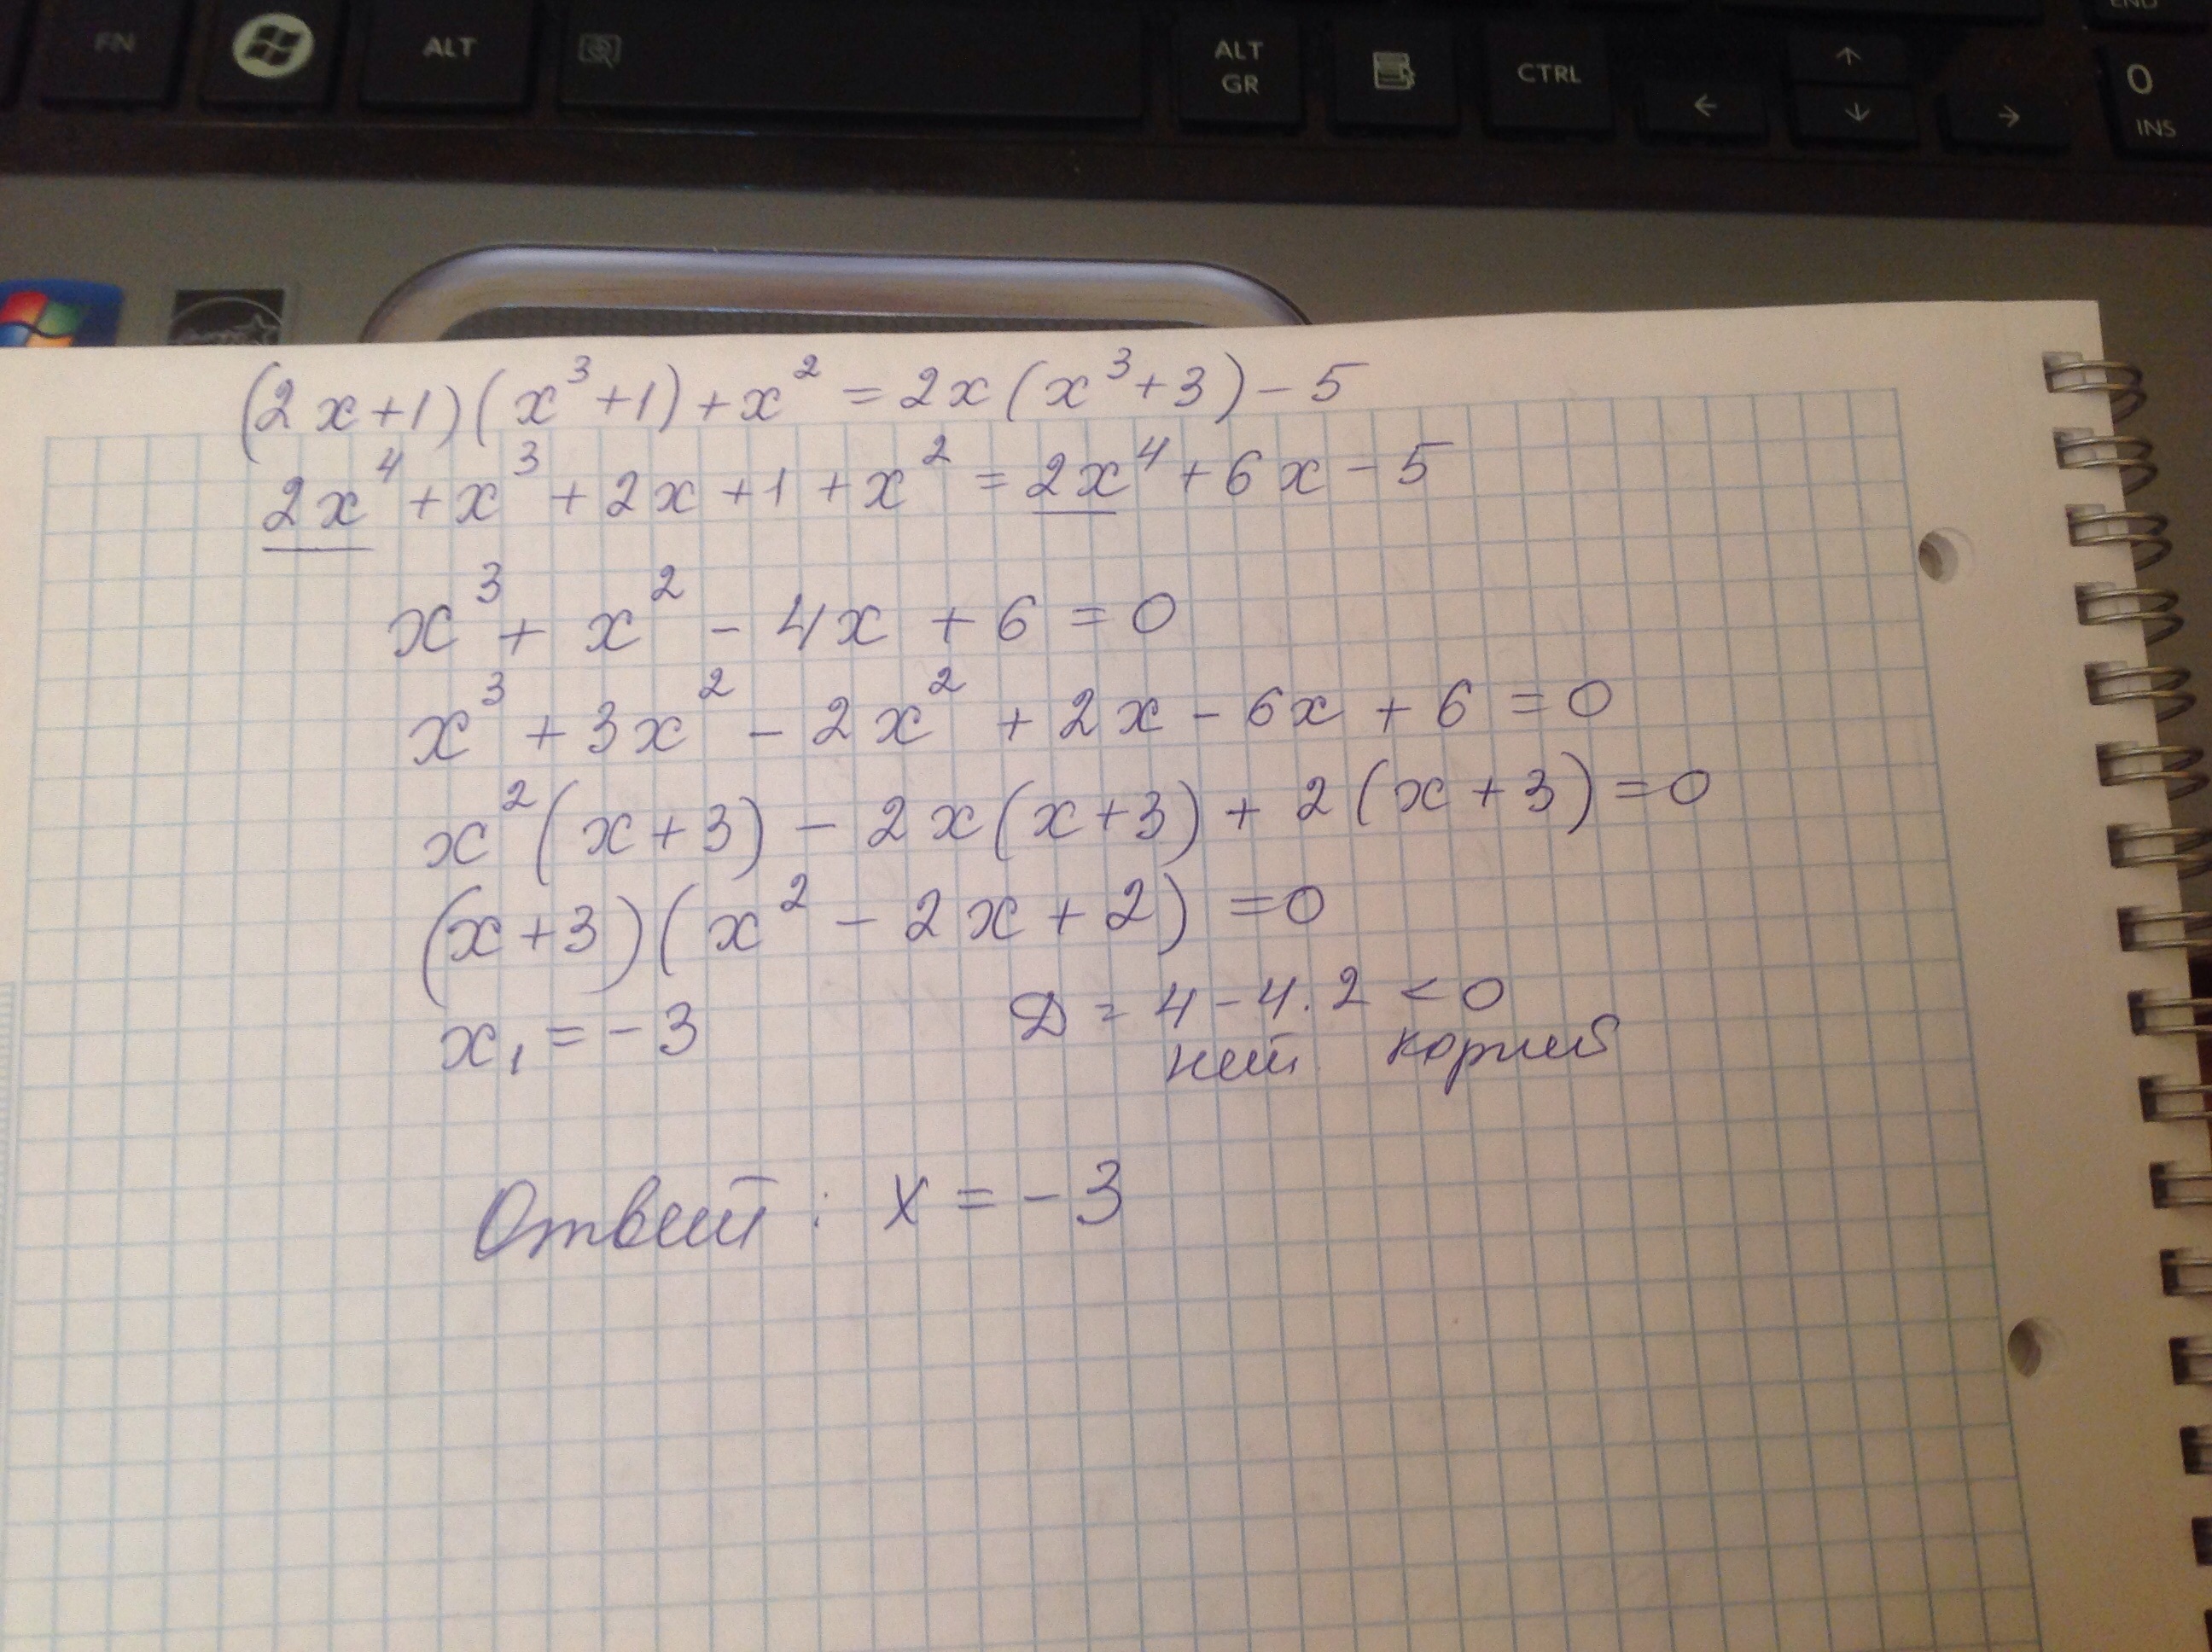 FN ALT ALT GR CTRL END 0 INS
(2x+1)(x³+1)+x²=2x(x³+3)-5
2x⁴+x³+2x+1+x²=2x⁴+6x-5
x³+x²-4x+6=0
x³+3x²-2x²+2x-6x+6=0
x²(x+3)-2x(x+3)+2(x+3)=0
(x+3)(x²-2x+2)=0
x₁=-3 D=4-4·2<0
нет корней
Ответ: x=-3